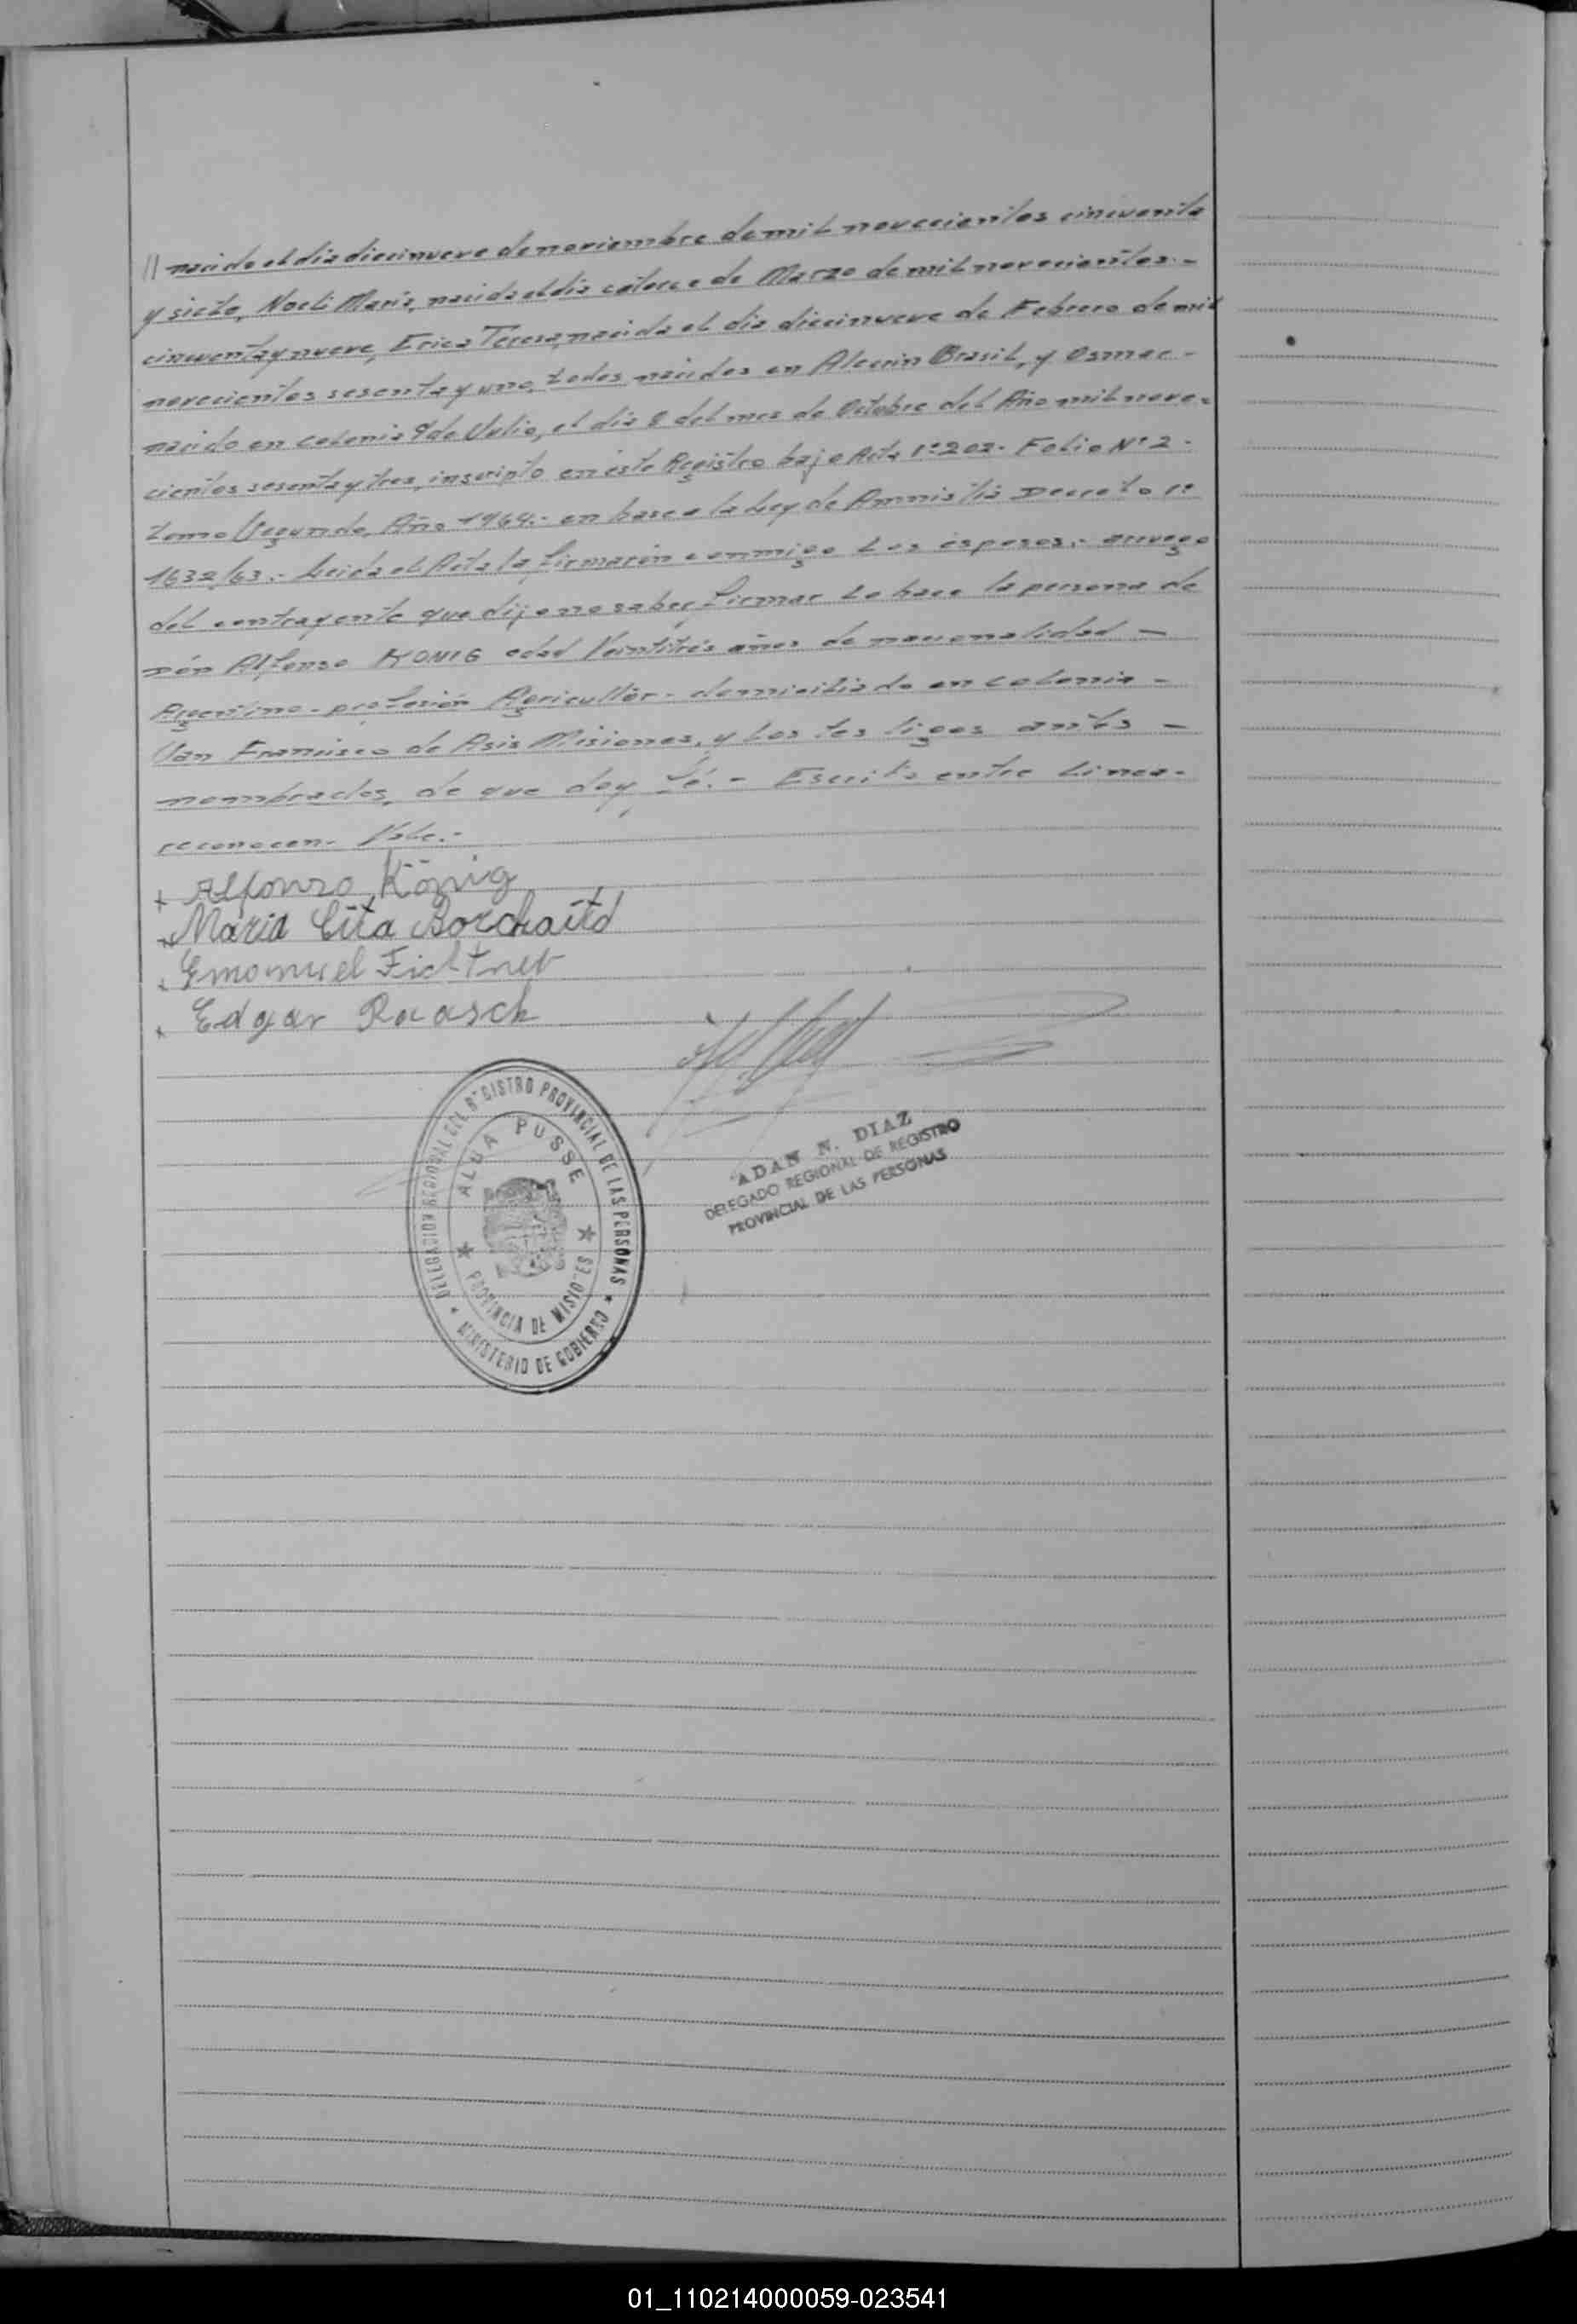 // nacido el día diecinueve de noviembre de mil novecientos cincuenta
y siete, Noeli María, nacida el día catorce de Marzo de mil novecientos.-
cincuenta y nueve, Erica Teresa, nacida el día diecinueve de Febrero de mil
novecientos sesenta y uno, todos nacidos en Alecrin Brasil, y Osmar.-
nacido en colonia 9 de Julio, el día 8 del mes de Octubre del Año mil nove-
cientos sesenta y tres, inscripto en éste Registro bajo Acta 1º 202.- Folio Nº 2.-
tomo Segundo, Año 1964.- en base a la Ley de Amnistía Decreto 1º
1632/63.- Leida el Acta la firmarón conmigo los esposos.- a ruego
del contrayente que dijo no saber firmar lo hace la persona de
Dón Alfonso KONIG edad Veintitrés años de nacionalidad —
Argentino.- profesión Agricultór.- domiciliado en colonia —
San Francisco de Asis Misiones, y los testigos antes —
nombrados, de que doy fé.- Escrito entre linea.-
reconocen.- Vale.-
+ Alfonzo König
Maria Cita Borchaitd
Emonuel Fichtner
Edgar Raasch
DELEGACION REGIONAL DEL REGISTRO PROVINCIAL DE LAS PERSONAS
ALUA PUSSE
PROVINCIA DE MISIONES
MINISTERIO DE GOBIERNO
ADAN N. DIAZ
DELEGADO REGIONAL DE REGISTRO
PROVINCIAL DE LAS PERSONAS
01_110214000059-023541